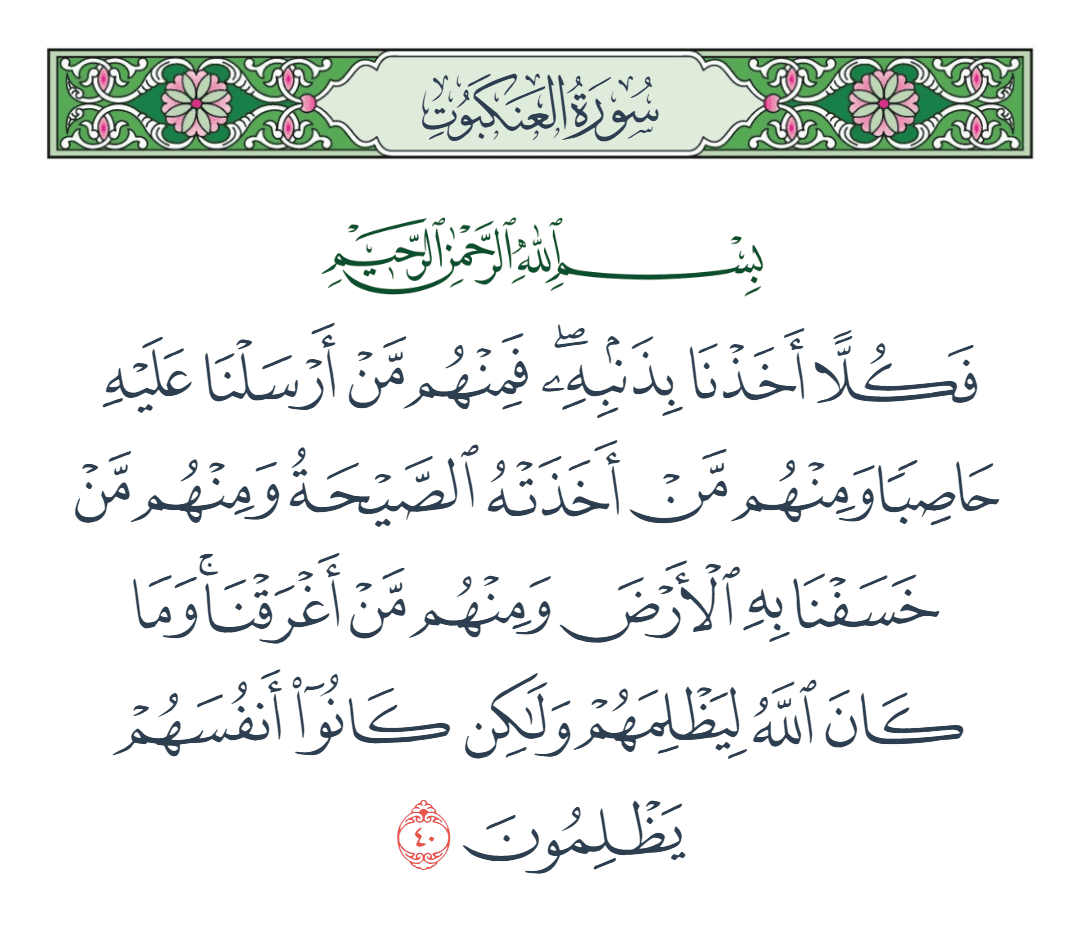 سُورَةُ العَنكَبُوتِ
بِسْمِ ٱللَّهِ ٱلرَّحْمَٰنِ ٱلرَّحِيمِ
فَكُلًّا أَخَذْنَا بِذَنۢبِهِۦۖ فَمِنْهُم مَّنْ أَرْسَلْنَا عَلَيْهِ
حَاصِبًا وَمِنْهُم مَّنْ أَخَذَتْهُ ٱلصَّيْحَةُ وَمِنْهُم مَّنْ
خَسَفْنَا بِهِ ٱلْأَرْضَ وَمِنْهُم مَّنْ أَغْرَقْنَاۚ وَمَا
كَانَ ٱللَّهُ لِيَظْلِمَهُمْ وَلَٰكِن كَانُوٓا۟ أَنفُسَهُمْ
يَظْلِمُونَ ٤٠